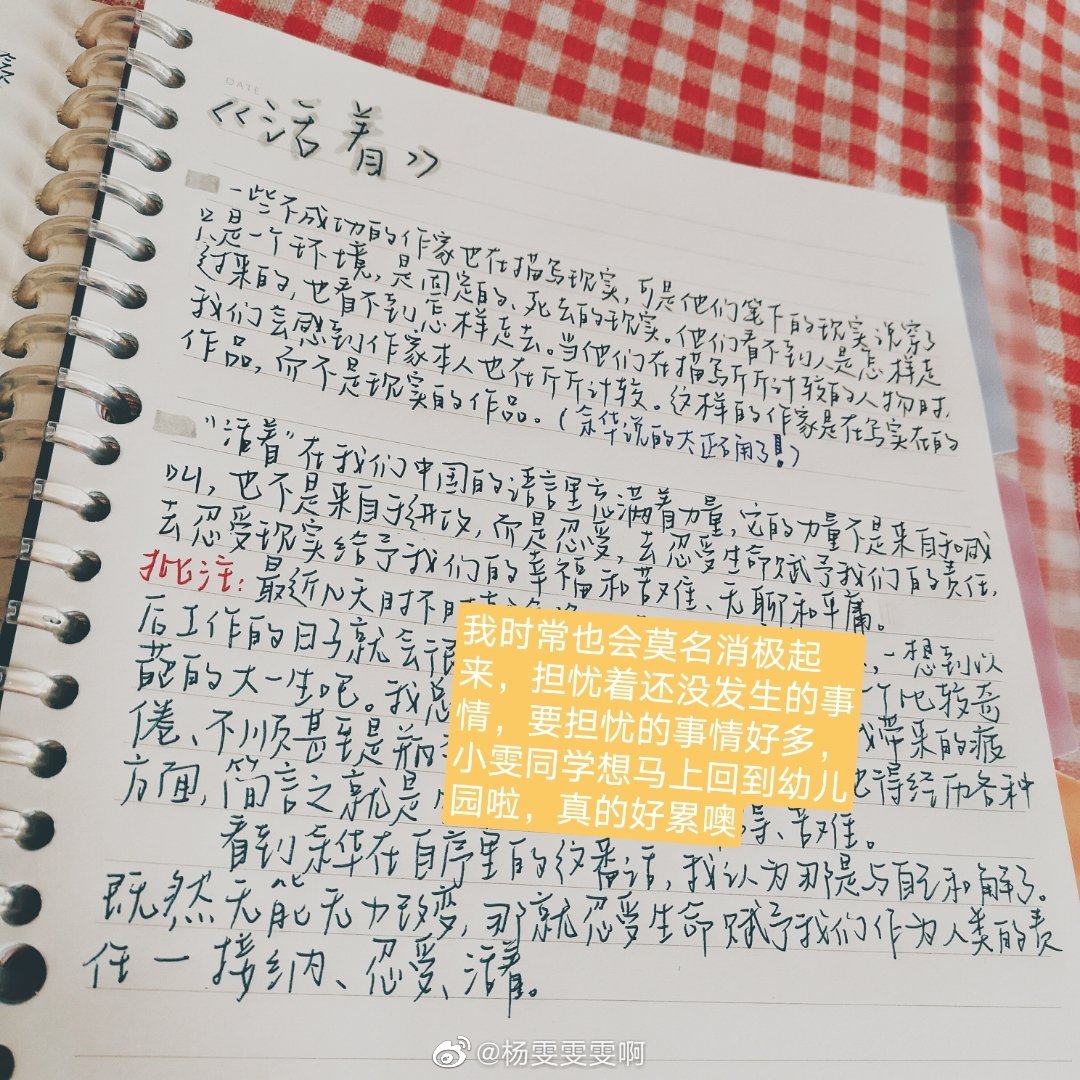 DATE
《活着》
一些不成功的作家也在描写现实，可是他们笔下的现实说穿了
只是一个环境，是固定的、死去的现实。他们看不到人是怎样走
过来的，也看不到怎样走去。当他们在描写斤斤计较的人物时，
我们会感到作家本人也在斤斤计较。这样的作家是在写实在的
作品，而不是现实的作品。（余华说的太正确了！）
"活着"在我们中国的语言里充满着力量，它的力量不是来自于喊
叫，也不是来自于进攻，而是忍受，去忍受生命赋予我们的责任，
去忍受现实给予我们的幸福和苦难、无聊和平庸。
批注：最近几天时不时
，一想到以
后工作的日子就会很
个比较奇
葩的大一生吧。我总
带来的疲
倦、不顺甚至是
也得经历各种
方面，简言之就是
、苦难。
看到余华在自序里的这番话，我认为那是与自己和解了。
既然无能无力改变，那就忍受生命赋予我们作为人类的责
任一接纳、忍受、活着。
我时常也会莫名消极起
来，担忧着还没发生的事
情，要担忧的事情好多，
小雯同学想马上回到幼儿
园啦，真的好累噢
@杨雯雯雯啊